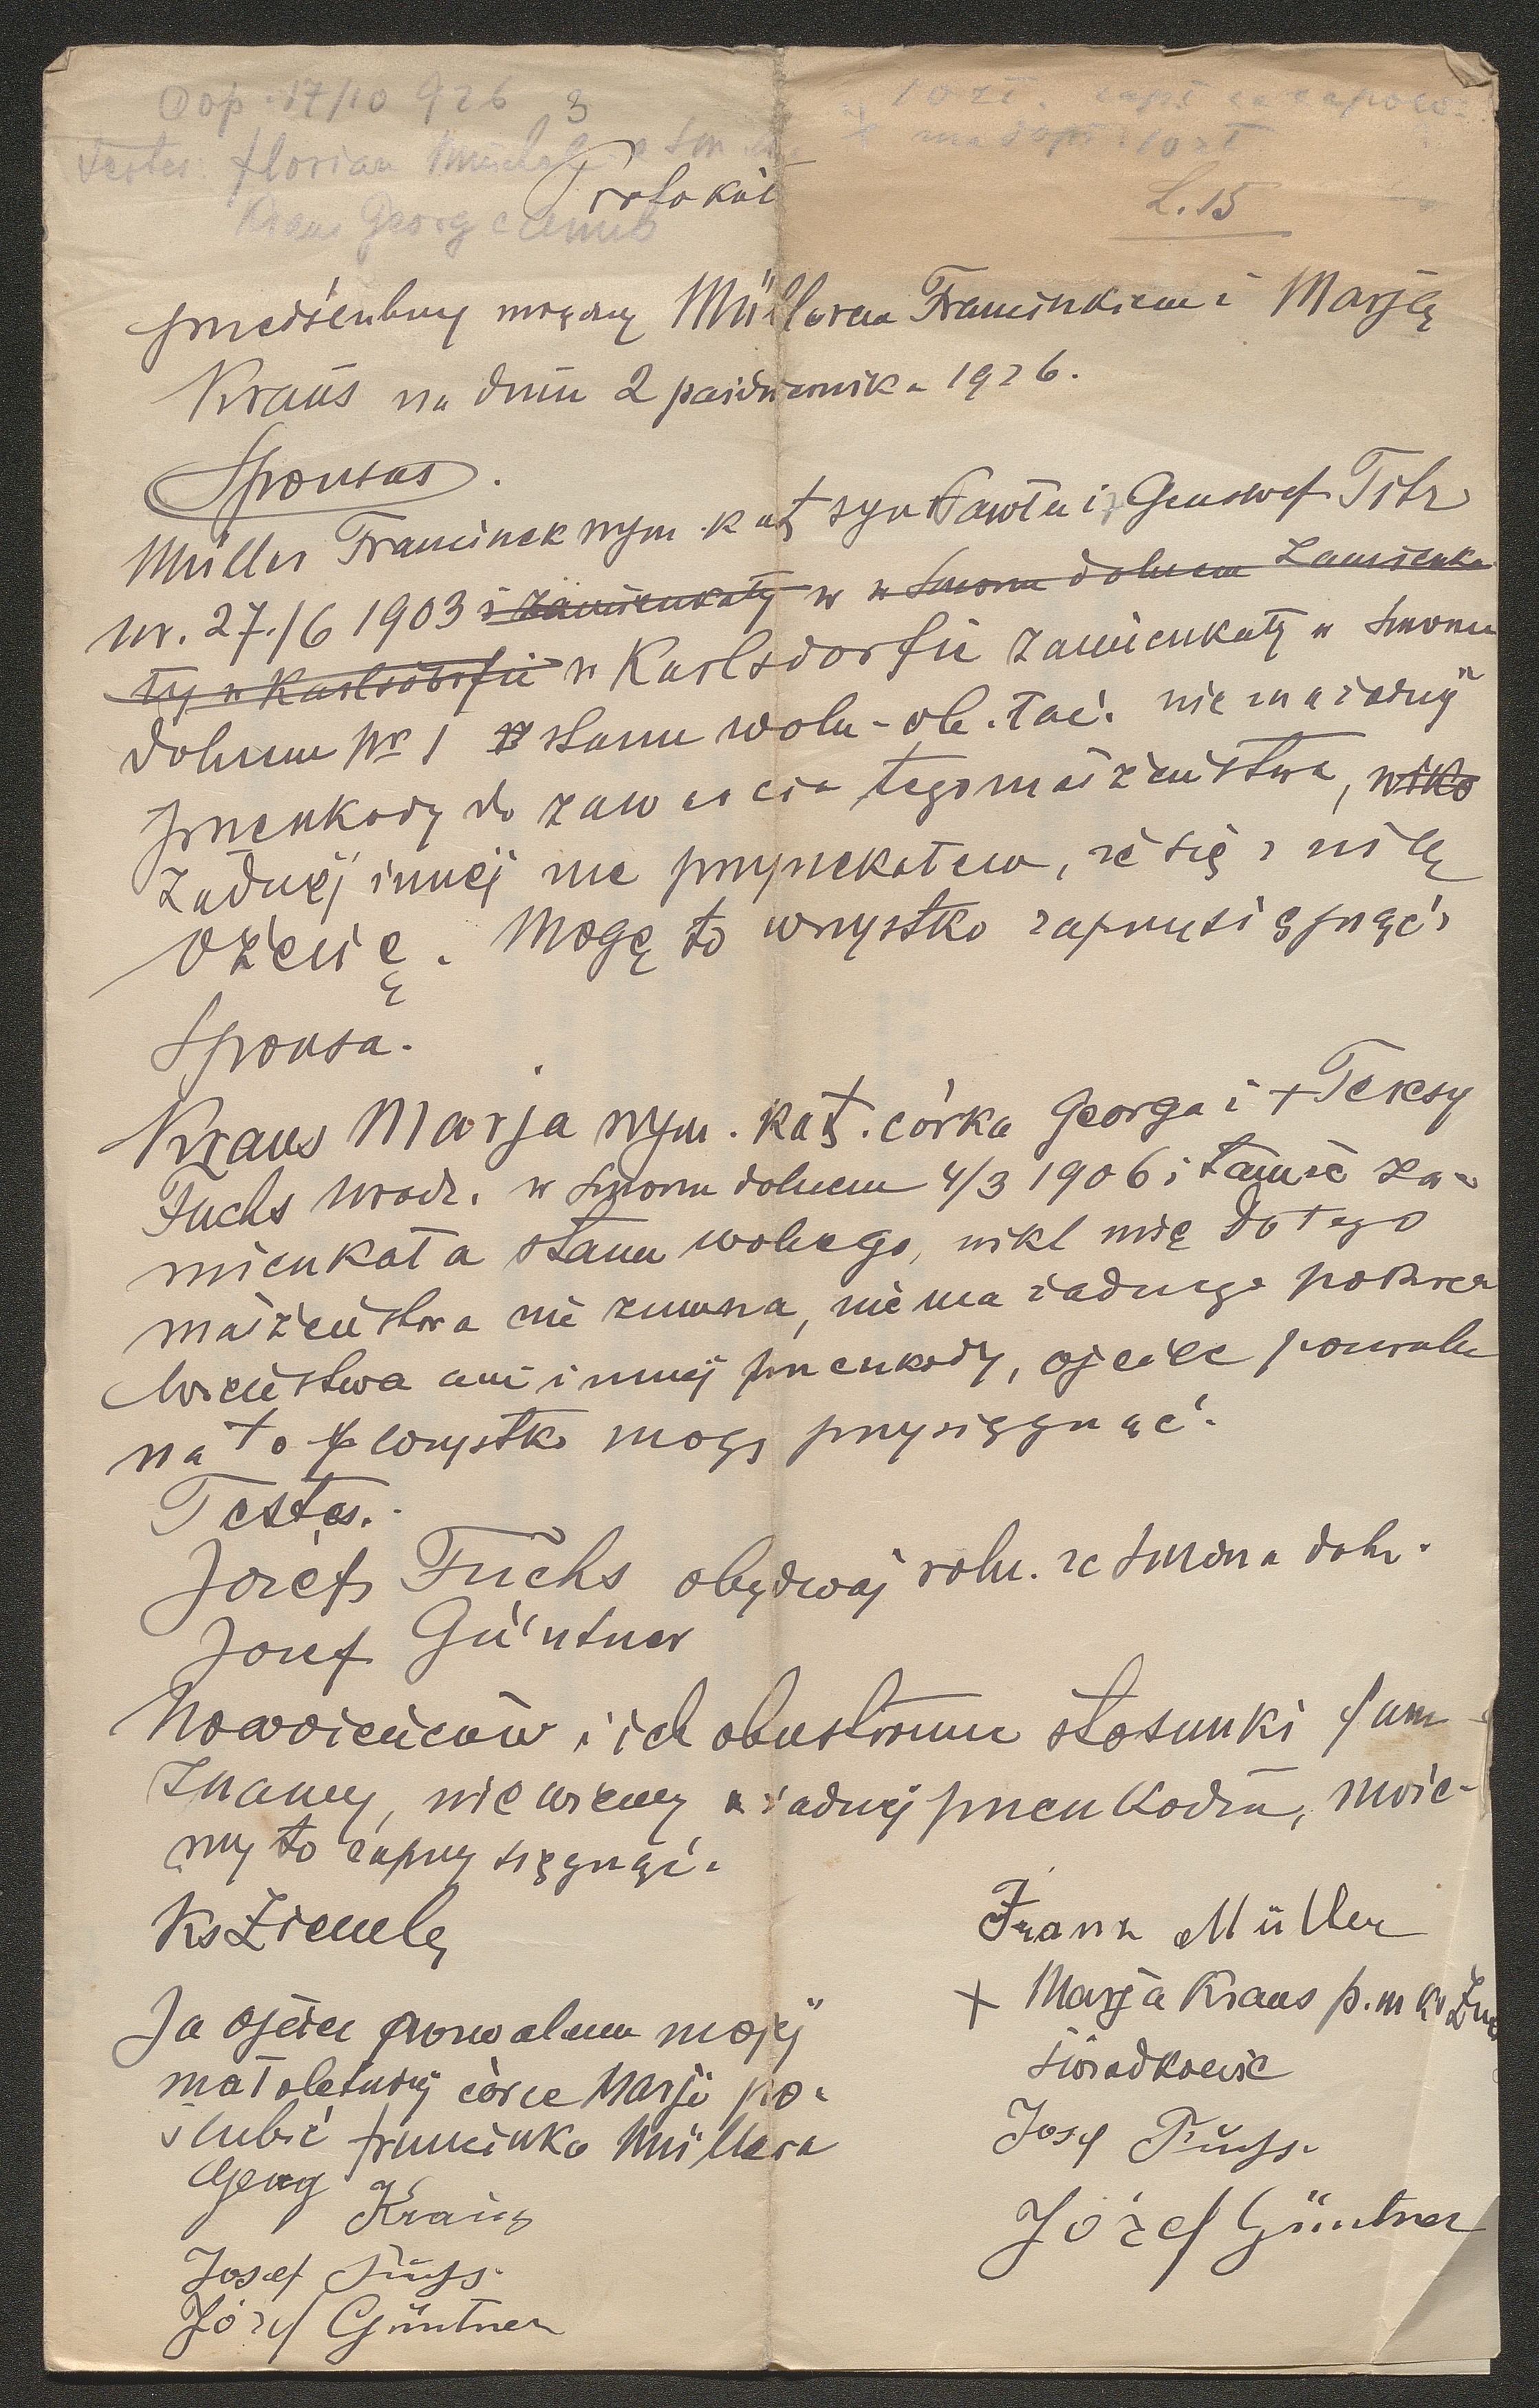 Cop. 17/10 926 3
10 zł. zapł. za zapow.
Testes: Florian
na 10 zł
Protokół
L. 15
Kraus Georg
przedślubny między Müllerem Franciszkiem i Marją
Kraus na dniu 2 października 1926.
Sponsus.
Müller Franciszek rzym. kat syn Pawła i Genowef
ur. 27./6 1903 i zamieszkały w w Smorzu dolnem zamieszka
ły w Karlsdorfie w Karlsdorfie zamieszkały w Smorzu
dolnem Nr 1 stanu woln-ob. łać. nie ma żadnej
przeszkody do zawarcia tego małżeństwa,
żadnej innej nie przyrzekałem, że się z nią
ożenię. Mogę to wszystko zaprzysięgnąć
Sponsa.
Kraus Marja rzym. kat. córka Georga i + Teresy
Fuchs urodz. w Smorzu dolnem 4/3 1906 i tamże za-
mieszkała stanu wolnego, nikt mię do tego
małżeństwa nie zmusza, nie ma żadnego pokrew
wieństwa ani innej przeszkody, ojciec pozwala
na to wszystko mogę przysięgnąć.
Testes.
Józef Fuchs obydwaj roln. ze Smorza doln.
Josef Güntner
Nowożeńców i ich obustronne stosunki fam
znamy, nie wiemy o żadnej przeszkodzie, może-
my to zaprzysięgnąć.
Ks Ziembę
Franz Müller
+ Marja Kraus p. m ks
Ja ojciec pozwalam mojej
świadkowie
małoletniej córce Marji po-
ślubić Franciszka Müllera
Josef Fuchs.
Georg Kraus
Józef Güntner
Josef Fuchs.
Józef Güntner